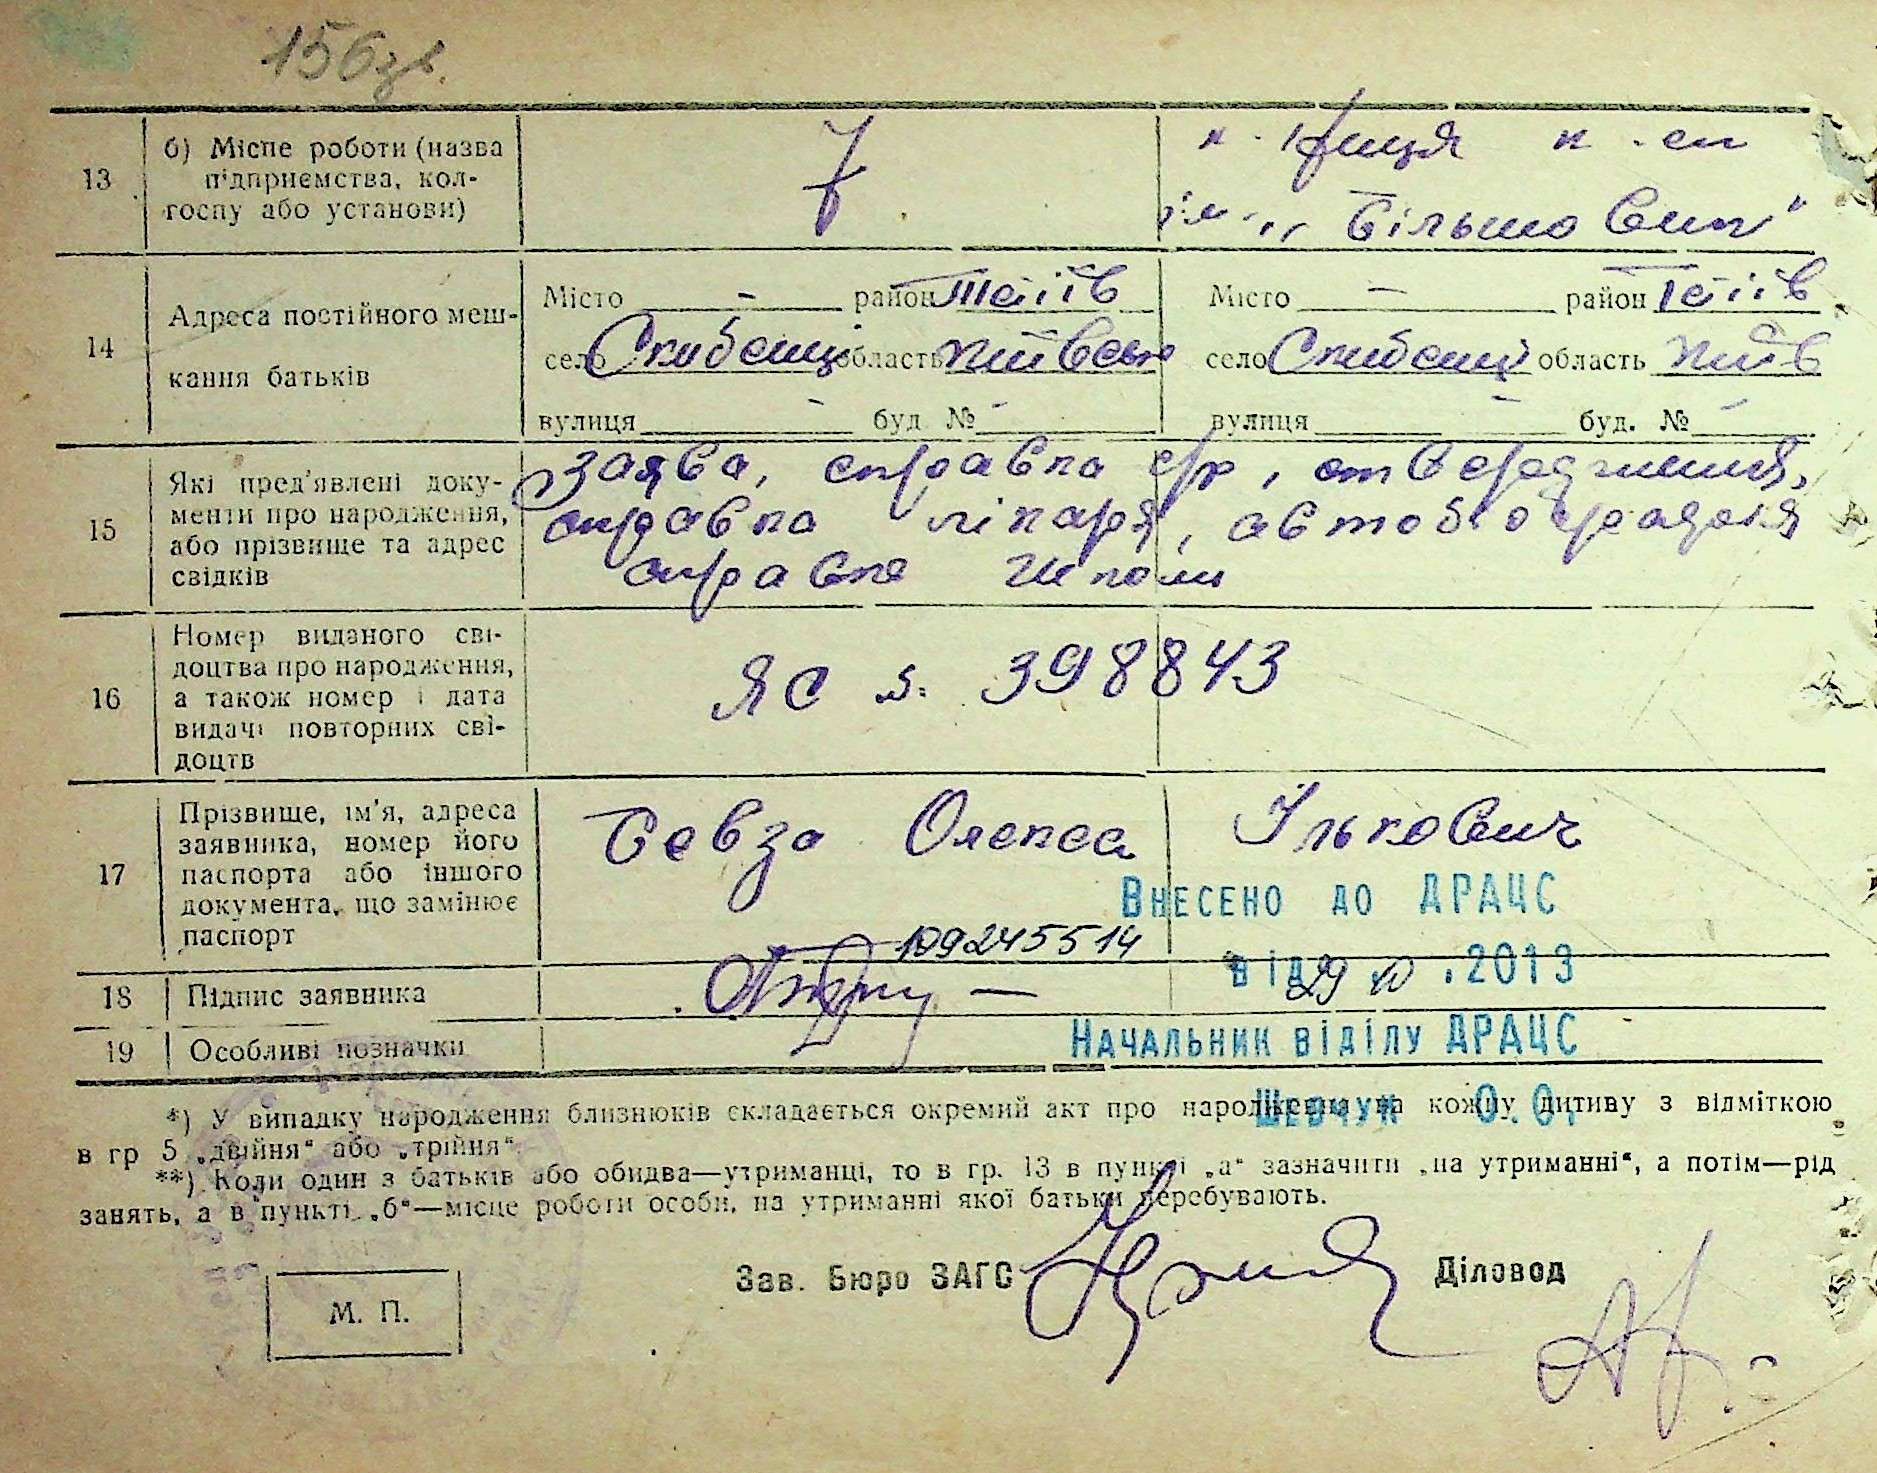 156зв.
13 б) Місце роботи (назва підприємства, колгоспу або установи)
к-ниця к-сп
ім. „Більшовик"
14 Адреса постійного мешкання батьків
Місто — район Тетіїв Місто — район Тетіїв
село Скибенці область Київська село Скибенці область Київ
вулиця — буд. № — вулиця — буд. № —
15 Які пред'явлені документи про народження, або прізвище та адрес свідків
Заява, справка с/р, ствердження,
справка лікаря, автобіографія
справка школи
16 Номер виданого свідоцтва про народження, а також номер і дата видачі повторних свідоцтв
ЯС № 398843
17 Прізвище, ім'я, адреса заявника, номер його паспорта або іншого документа, що замінює паспорт
Бевза Олекса Ількович
Внесено до ДРАЦС
10924551 4
від 29 10 .2013
18 Підпис заявника
Начальник відділу ДРАЦС
19 Особливі позначки
Шевчук О.О.
*) У випадку народження близнюків складається окремий акт про народження на кожну дитину з відміткою
в гр 5 „двійня" або „трійня"
**) Коли один з батьків або обидва—утриманці, то в гр. 13 в пункті „а" зазначити „на утриманні", а потім—рід
занять, а в пункті „б"—місце роботи особи, на утриманні якої батьки перебувають.
Зав. Бюро ЗАГС Діловод
М. П.